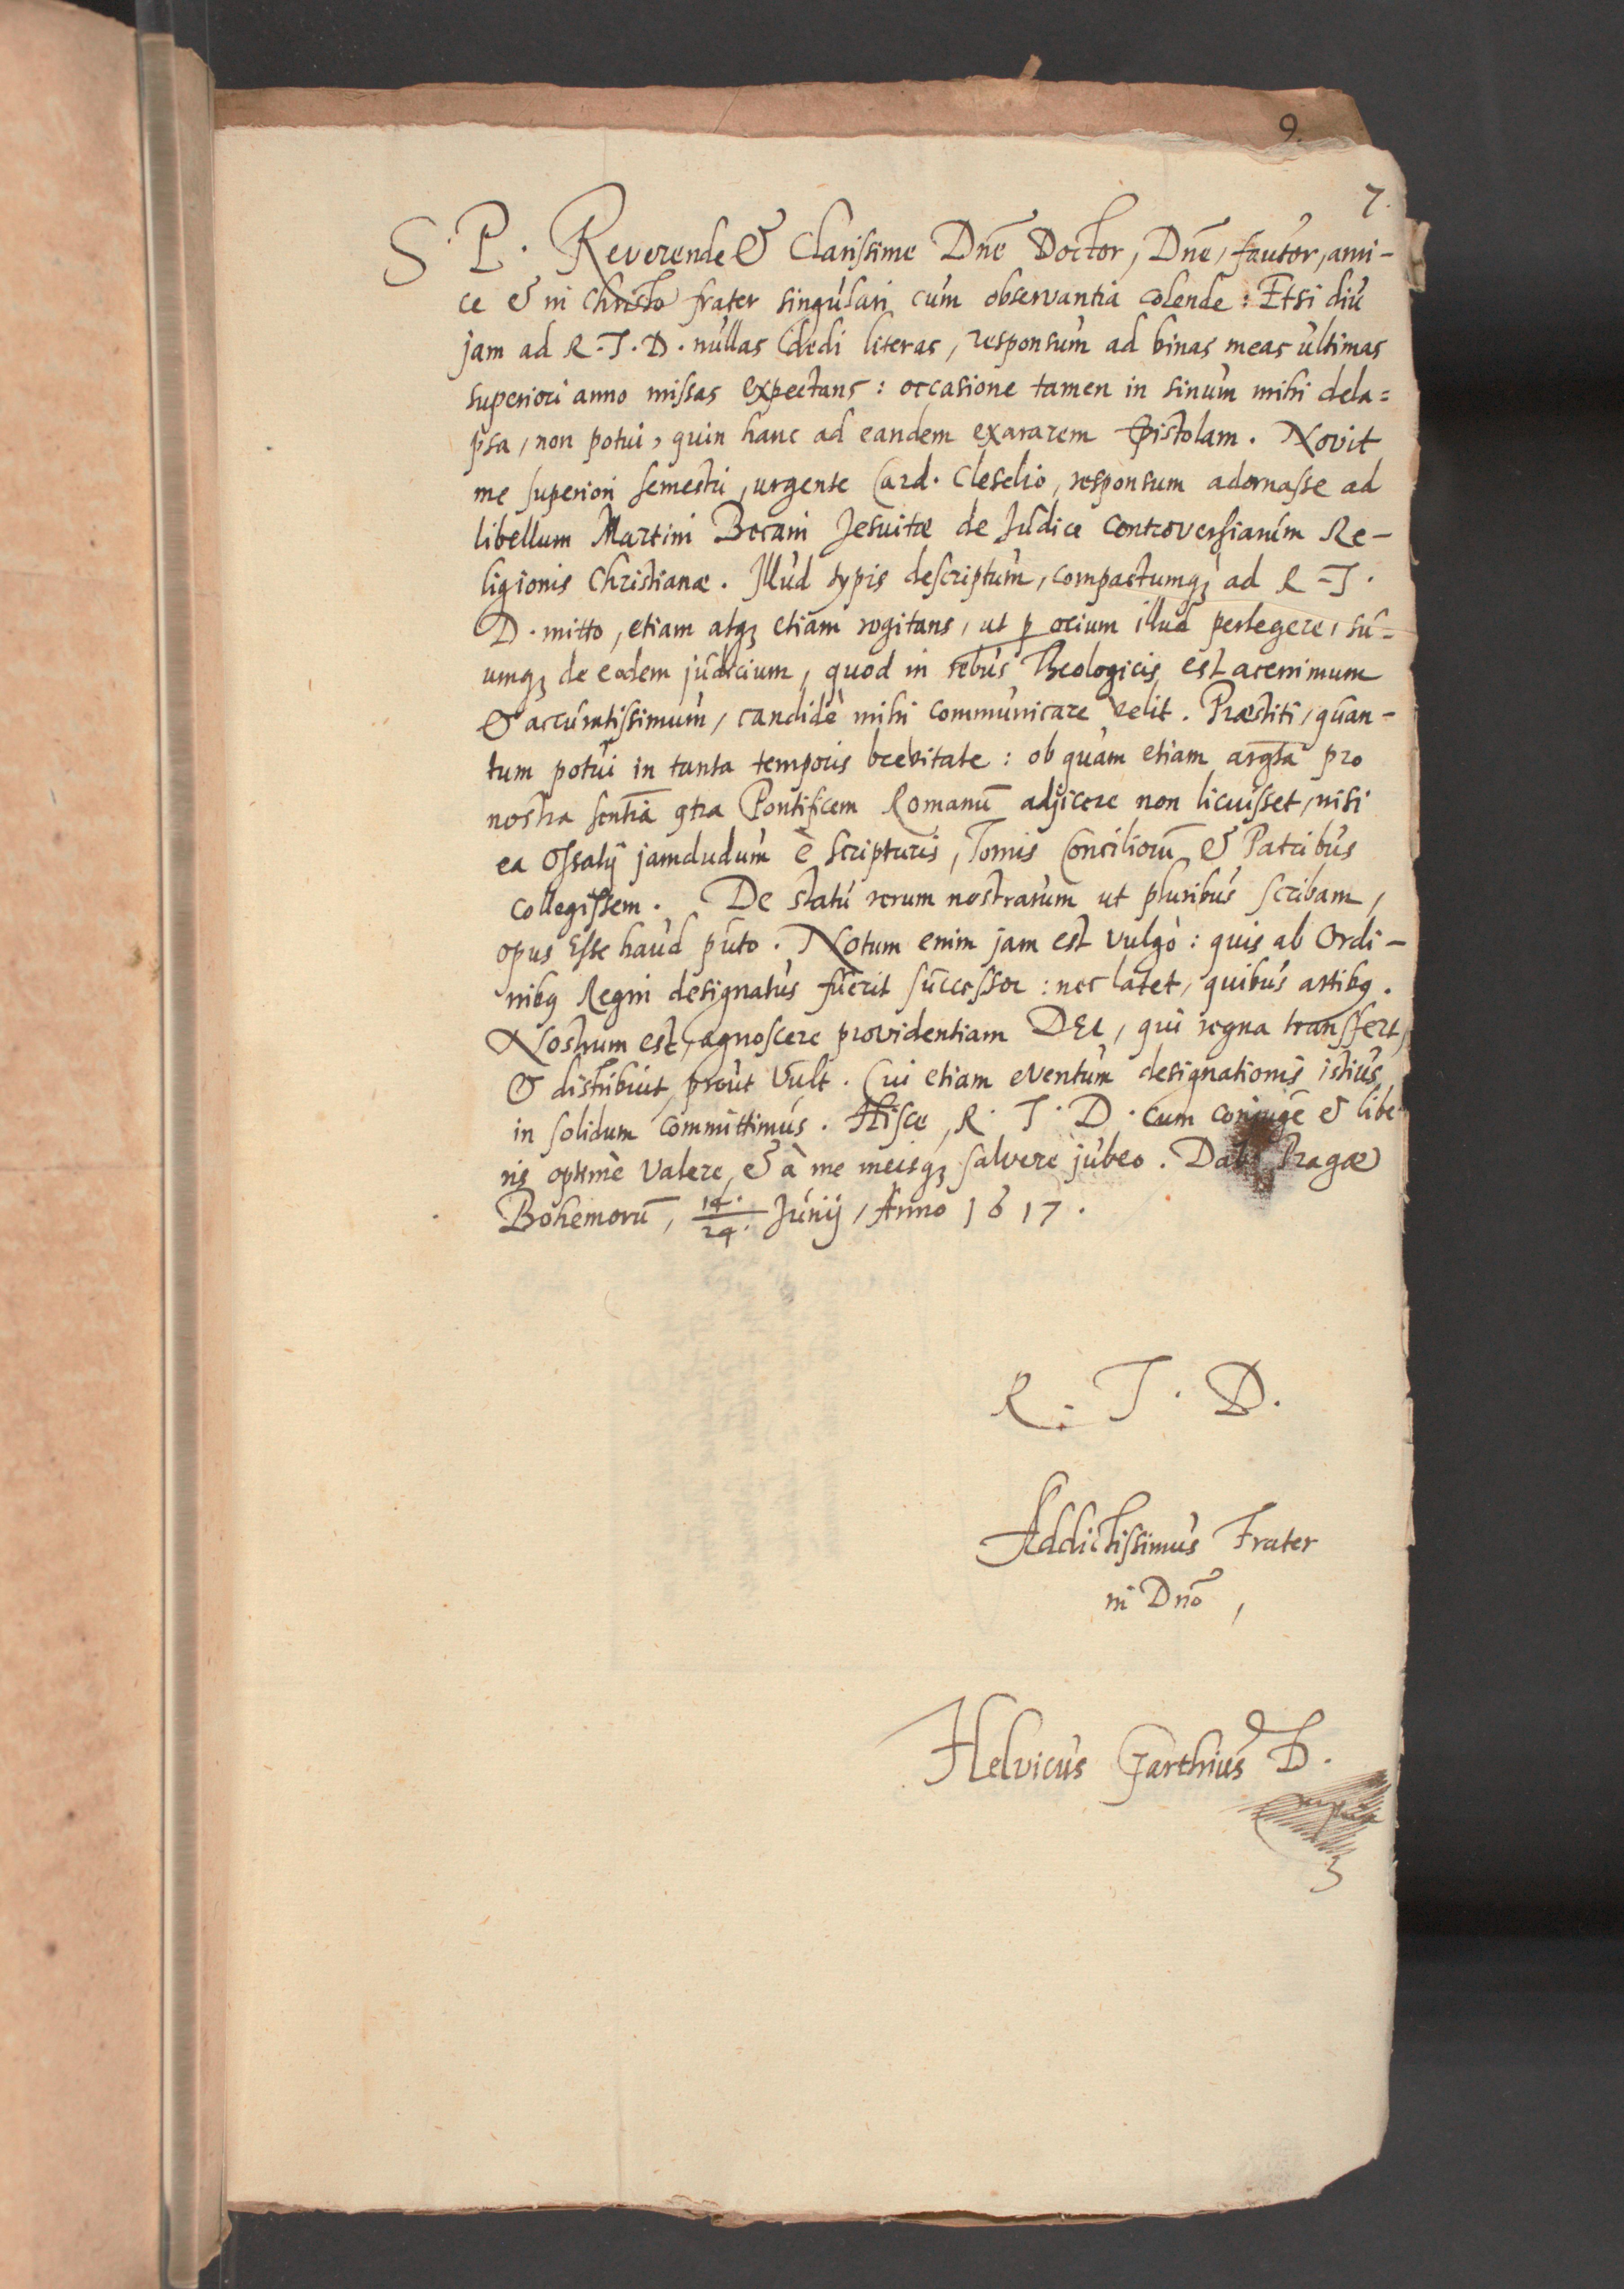 9.
7.
S. P. Reverende & Clarissime Dn̄e Doctor, Dn̄e, fautor, ami-
ce & in Christo frater singulari cum observantia colende: Etsi diu
jam ad R. T. D. nullas dedi literas, responsum ad binas meas ultimas
superiori anno missas expectans: occasione tamen in sinum mihi dela=
psa, non potui, quin hanc ad eandem exararem Epistolam. Novit
me superiori semestri, urgente Card. Cleselio, responsum adornasse ad
libellum Martini Becani Jesuitæ de Judice Controversiarum Re-
ligionis Christianæ. Illud typis descriptum, compactumq; ad R. T.
D. mitto, etiam atq; etiam rogitans, ut ꝑ ocium illud perlegere, su-
umq; de eodem judicium, quod in rebus Theologicis est acerrimum
& accuratissimum, candidè mihi communicare velit. Præstiti, quan-
tum potui in tanta temporis brevitate: ob quam etiam argta pro
nostra sentiā ꝯtra Pontificem Romanū adjicere non licuisset, nisi
ea jamdudum è scripturis, Tomis Conciliorū & Patribus
collegissem. De statu rerum nostrarum ut pluribus scribam,
opus esse haud puto. Notum enim jam est vulgò: quis ab Ordi-
nibꝫ Regni designatus fuerit successor: nec latet, quibus artibꝫ.
Nostrum est, agnoscere providentiam DEI, qui regna transfert,
& distribuit, prout vult. Cui etiam eventum designationis istius
in solidum committimus. Hisce, R. T. D. cum conjuge & libe-
ris optimè valere, & à me meisq; salvere jubeo. Dab. Pragæ
Bohemorū, 14./24. Junij, Anno 1617.
R. T. D.
Addictissimus Frater
in Dn̄o,
Helvicus Garthius D.
mpria